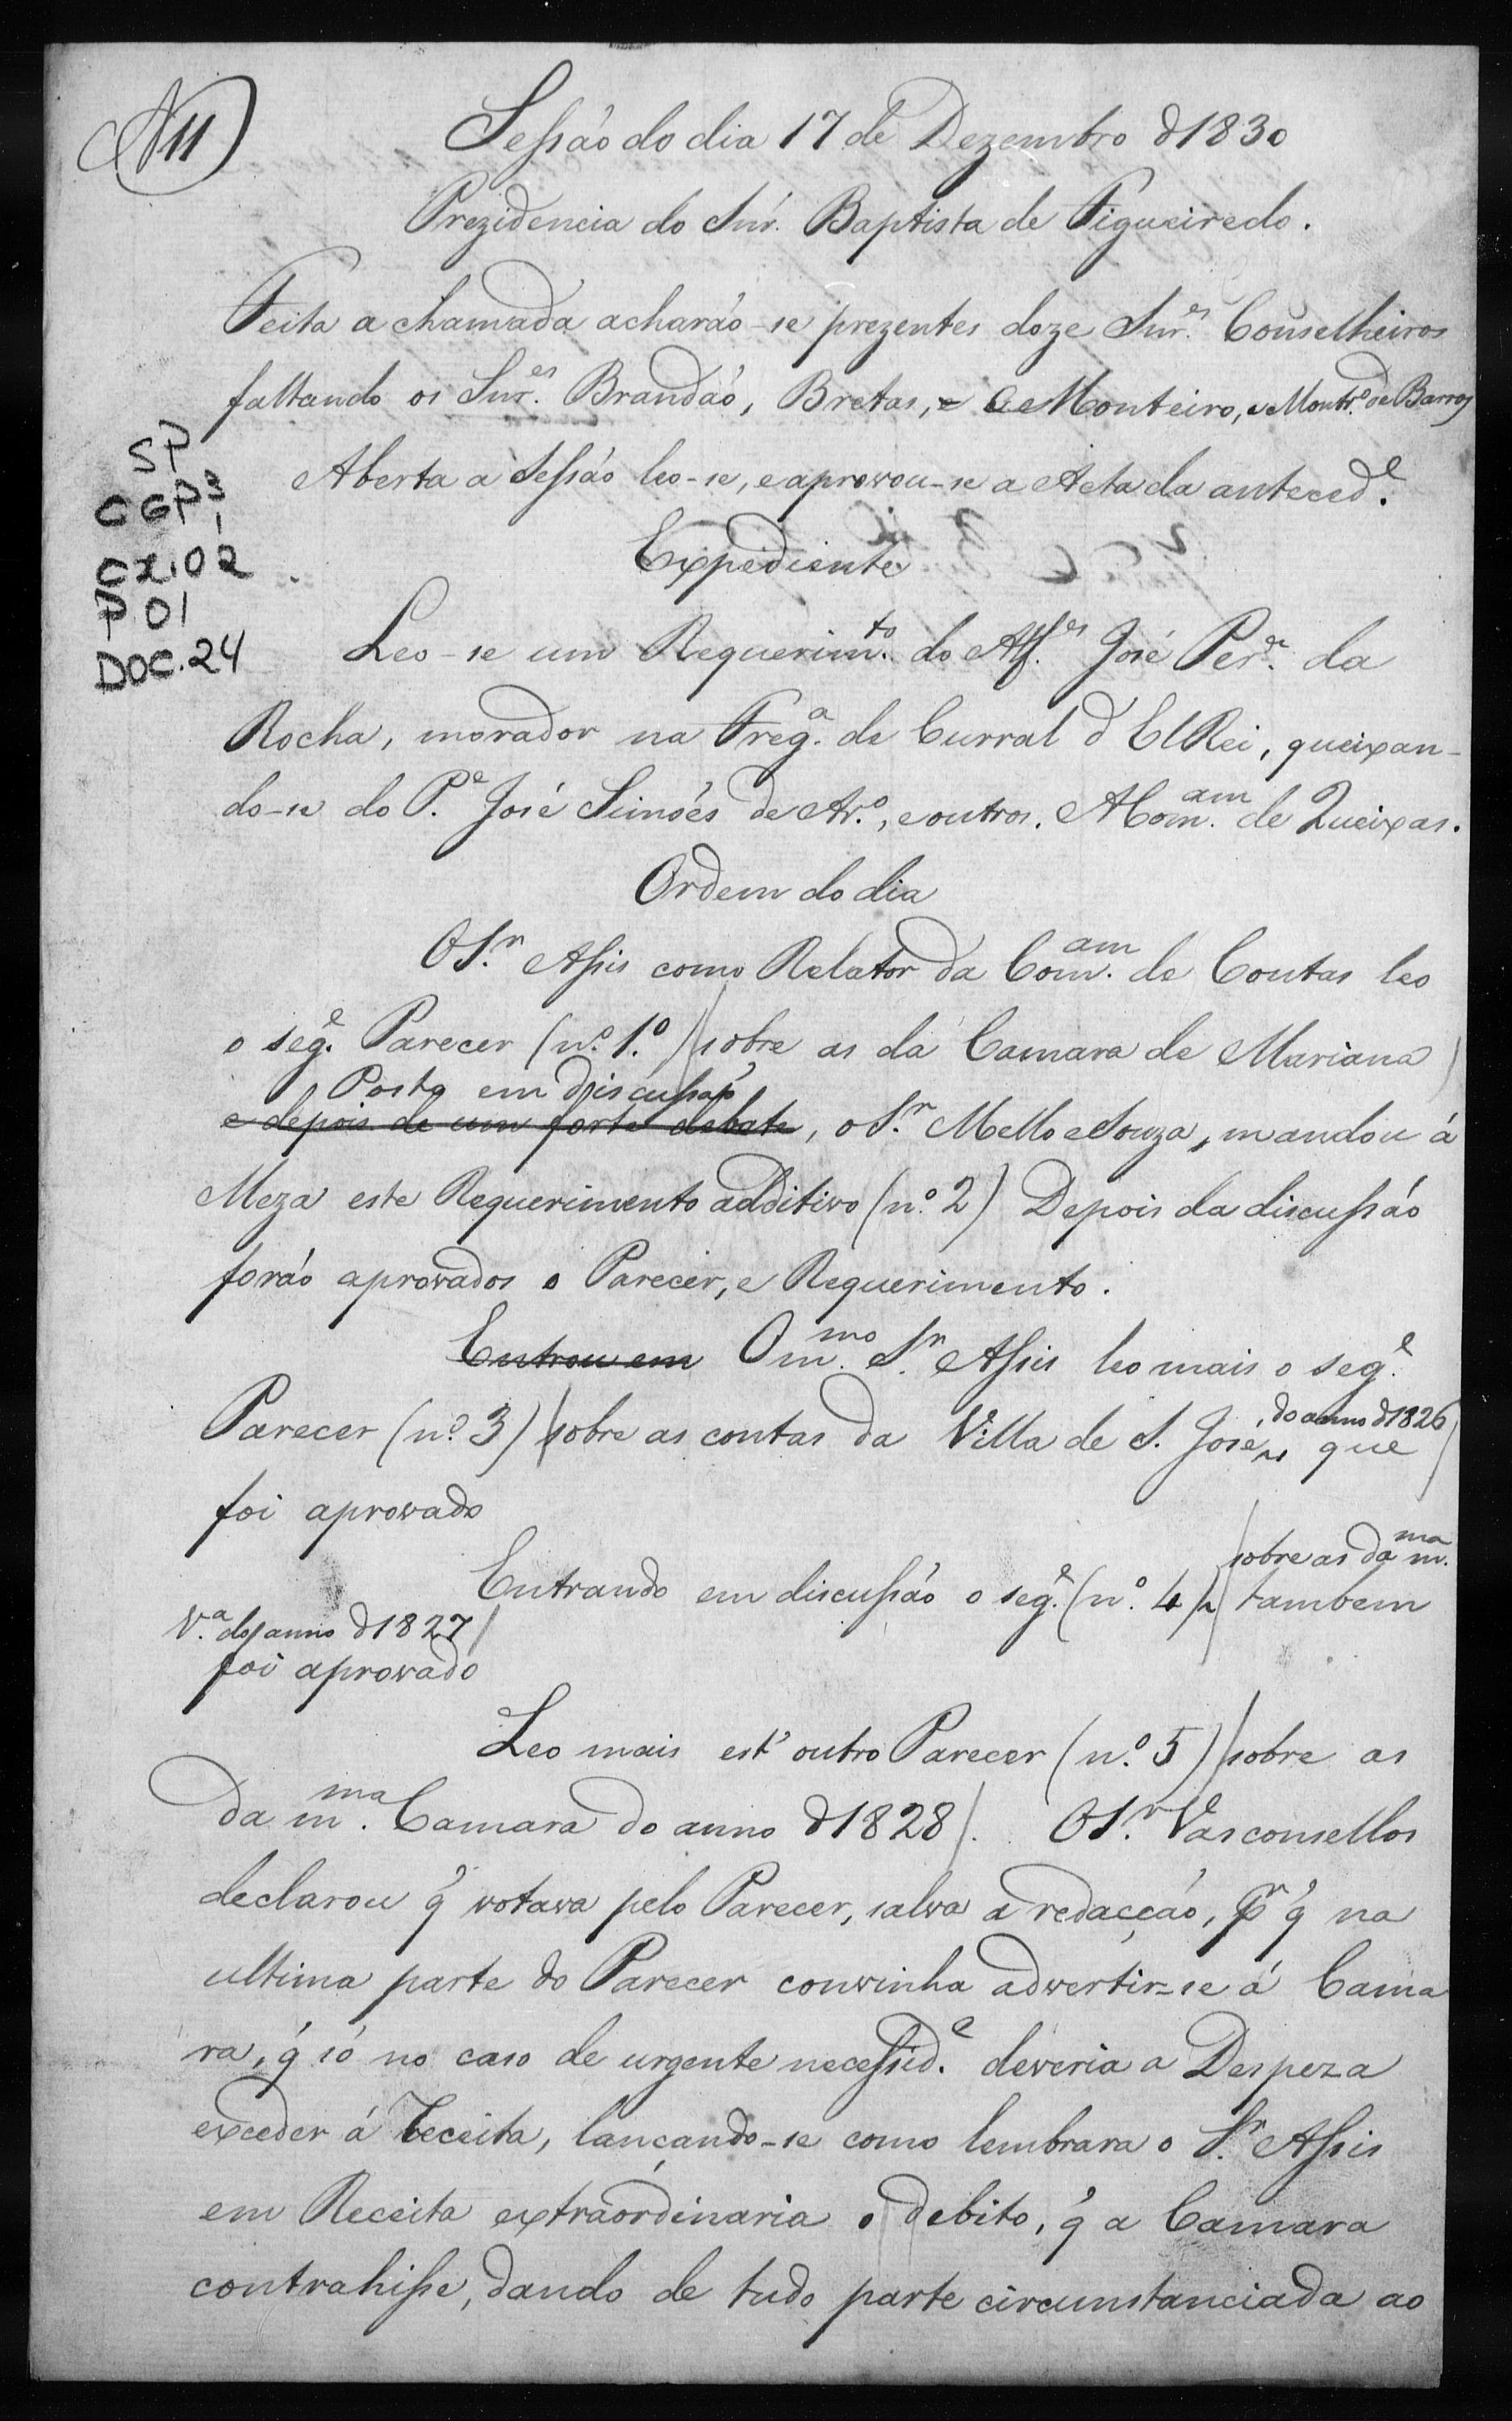 N 11
Sessão do dia 17 de Dezembro d'1830
Prezidencia do Snr. Baptista de Figueiredo.
Feita a chamada acharão-se prezentes doze Snr.es Conselheiros
faltando os Snr.es Brandão, Bretas, e Monteiro, e Montr.o de Barros
Aberta a Sessão leo-se, e aprovou-se a Acta da anteced.e
SP
CGP3
1
CX.02
P 01
DOC.24
Expediente
Leo-se um Requerim.to do Alf.es José Per.a da
Rocha, morador na Freg.a de Curral d'ElRei, queixan-
do-se do P.e José Simões de Ar.o, e outros. A Com.am de Queixas.
Ordem do dia
O Sr. Assis como Relator da Com.am de Contas leo
o seg.e Parecer (n.o 1.o) / sobre as da Camara de Mariana /
Posto em discussão
e depois de um forte debate, o Sr. Mello e Souza, mandou á
Meza este Requerimento additivo (n.o 2) Depois da discussão
forão aprovados o Parecer, e Requerimento.
Entrou em O m.mo Sr. Assis leo mais o seg.e
do anno d'1826 /
Parecer (n.o 3) / sobre as contas da Villa de S. José, que
foi aprovado
/ sobre as da m.ma
Entrando em discussão o seg.e (n.o 4) tambem
V.a do anno d'1827 /
foi aprovado
Leo mais est'outro Parecer (n.o 5) / sobre as
da m.ma Camara do anno d'1828 /. O Sr. Vasconsellos
declarou q' votava pelo Parecer, salva a redacção, pr q' na
ultima parte do Parecer convinha advertir-se á Cama
ra, q' só no caso de urgente necessid.e deveria a Despeza
exceder á Receita, lançando-se como lembrara o Sr. Assis
em Receita extraordinaria o debito, q' a Camara
contrahisse, dando de tudo parte circunstanciada ao